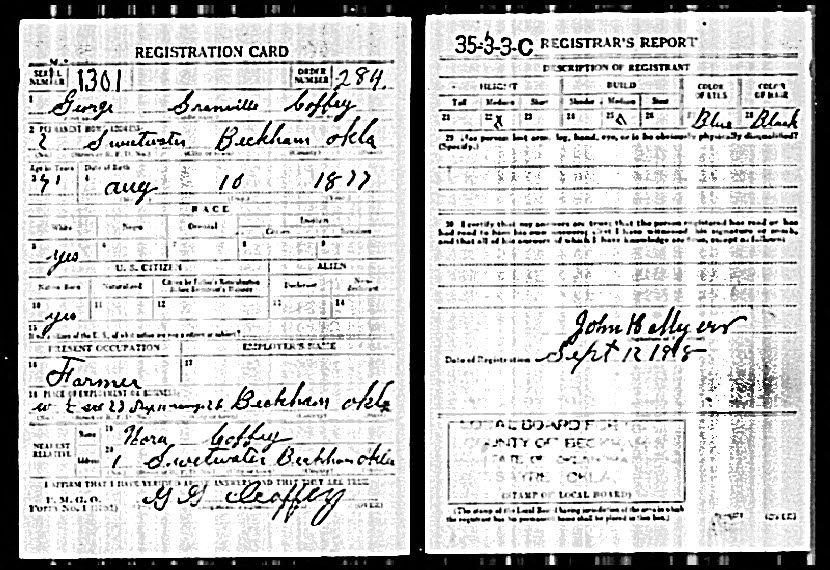 REGISTRATION CARD
SERIAL NUMBER 1301 ORDER NUMBER 284.
1 George Granville Coffey
2 PERMANENT HOME ADDRESS
2 Sweetwater Beckham Okla
Age in Years Date of Birth
41 Aug 10 1877
RACE
White Negro Oriental Indian
Citizen
5 6 7 8 9
yes
U. S. CITIZEN ALIEN
Native Born Naturalized Citizen by Father's Naturalization Before Registrant's Majority Declarant Non-declarant
10 11 12 13 14
yes
15
PRESENT OCCUPATION EMPLOYER'S NAME
16 17
Farmer
18 PLACE OF EMPLOYMENT OR BUSINESS
Beckham Okla
NEAREST RELATIVE Name 19 Nora Coffey
Address 20 1 Sweetwater Beckham Okla
I AFFIRM THAT I HAVE VERIFIED ABOVE ANSWERS AND THAT THEY ARE TRUE
P. M. G. O.
Form No. 1 G G Coffey (OVER)
35-3-3-C REGISTRAR'S REPORT
DESCRIPTION OF REGISTRANT
HEIGHT BUILD COLOR OF EYES COLOR OF HAIR
Tall Medium Short Slender Medium Stout
21 22 X 23 24 25 X 26 27 Blue 28 Black
29 Has person lost arm, leg, hand, eye, or is he obviously physically disqualified?
(Specify.)
30 I certify that my answers are true; that the person registered has read or has
had read to him his own answers; that I have witnessed his signature or mark,
and that all of his answers of which I have knowledge are true, except as follows:
John H Myers
Date of Registration Sept 12 1918
LOCAL BOARD FOR
COUNTY OF BECKHAM
STATE OF OKLAHOMA
SAYRE, OKLA.
(STAMP OF LOCAL BOARD)
(The stamp of the Local Board having jurisdiction of the area in which
the registrant has his permanent home shall be placed in this box.)
(OVER)